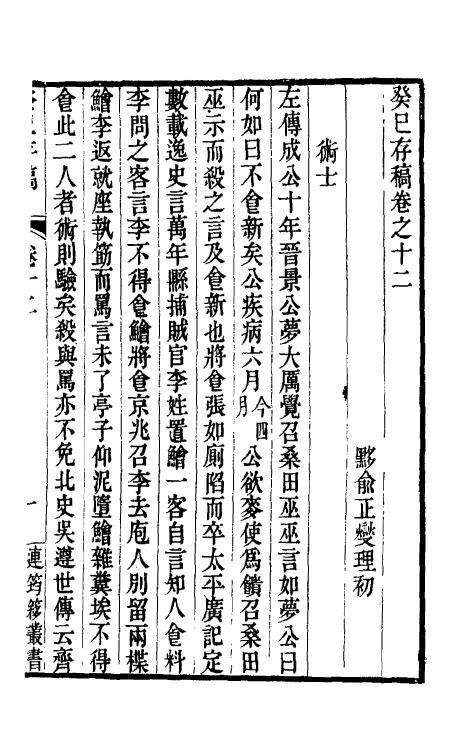 癸巳存稿卷之十二
黟俞正燮理初
術士
左傳成公十年晉景公夢大厲覺召桑田巫巫言如夢公曰
何如曰不食新矣公疾病六月今四月公欲麥使爲饋召桑田
巫示而殺之言及食新也將食張如廁陷而卒太平廣記定
數載逸史言萬年縣捕賊官李姓置鱠一客自言知人食料
李問之客言李不得食鱠將食京兆召李去庖人別留兩楪
鱠李返就座執筯而罵言未了亭子仰泥墮鱠雜糞埃不得
食此二人者術則驗矣殺與罵亦不免北史吳遵世傳云齊
卷十二
一
連筠簃叢書